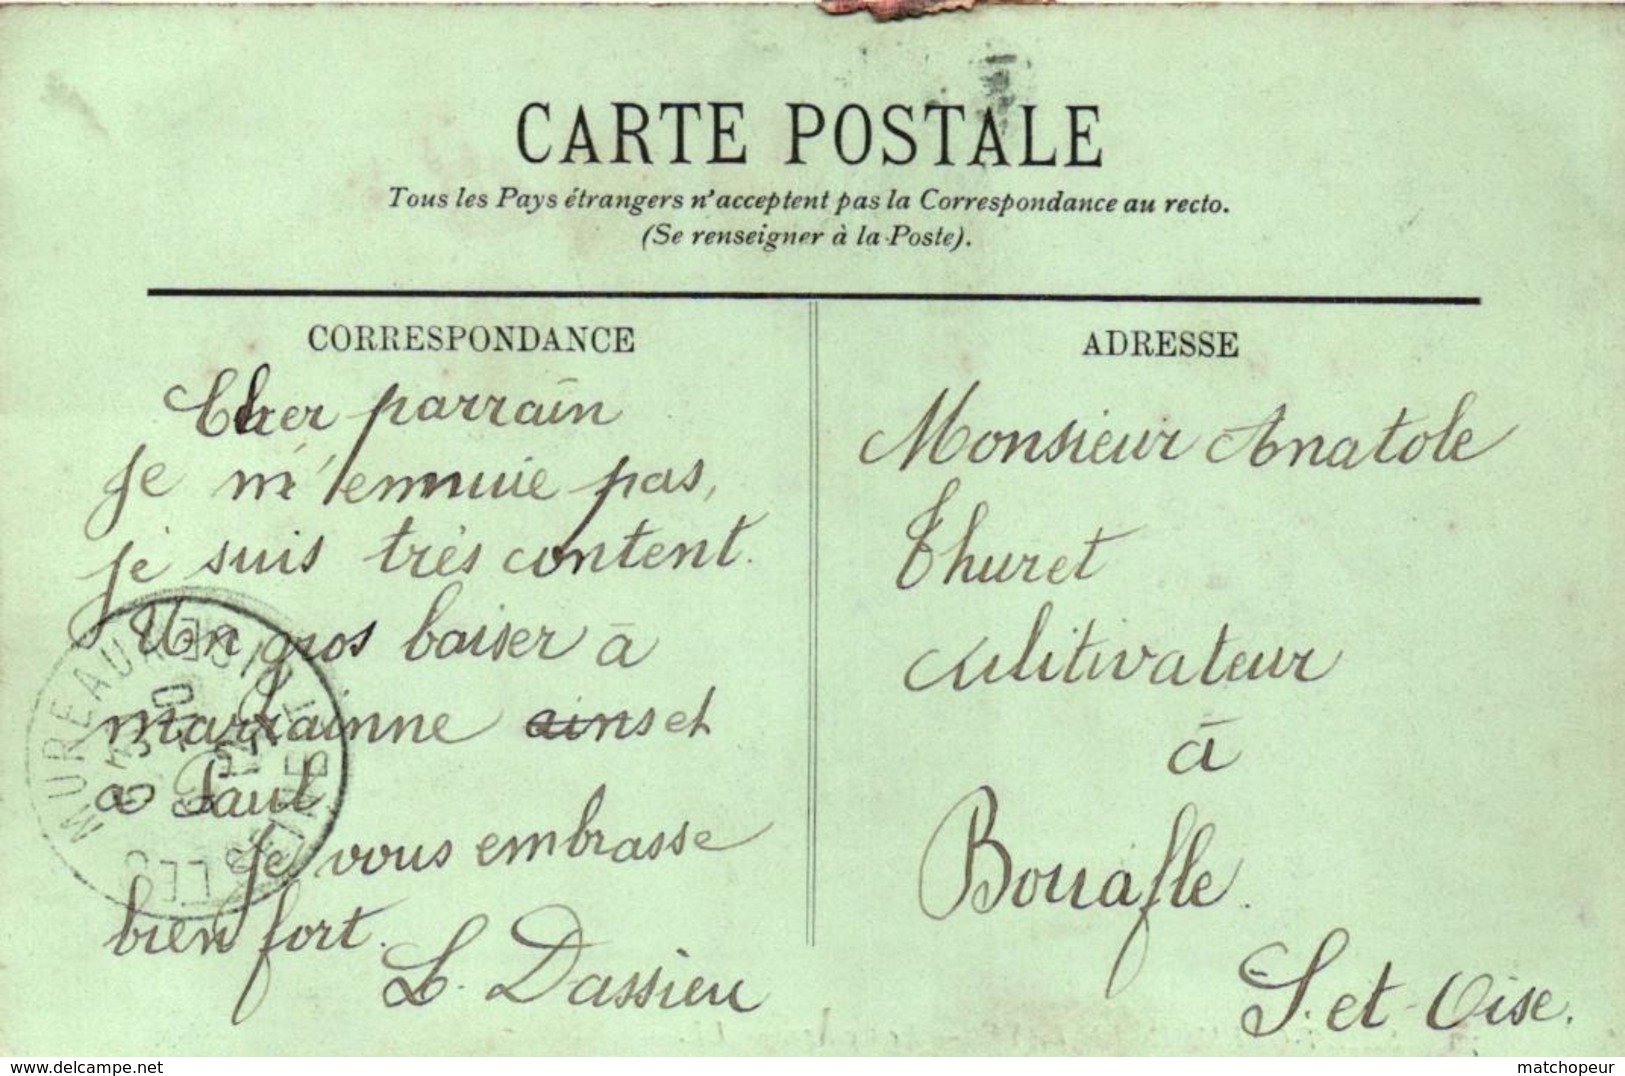 CARTE POSTALE
Tous les Pays étrangers n'acceptent pas la Correspondance au recto.
(Se renseigner à la Poste).
CORRESPONDANCE
Cher parrain
je m'ennuie pas,
je suis très content.
Un gros baiser à
marrainne ains et
a Paul
Je vous embrasse
bien fort.
L. Dassieu
ADRESSE
Monsieur Anatole
Thuret
culitivateur
à
Bouafle.
S. et Oise.
MUREAUX
delcampe.net
matchopeur